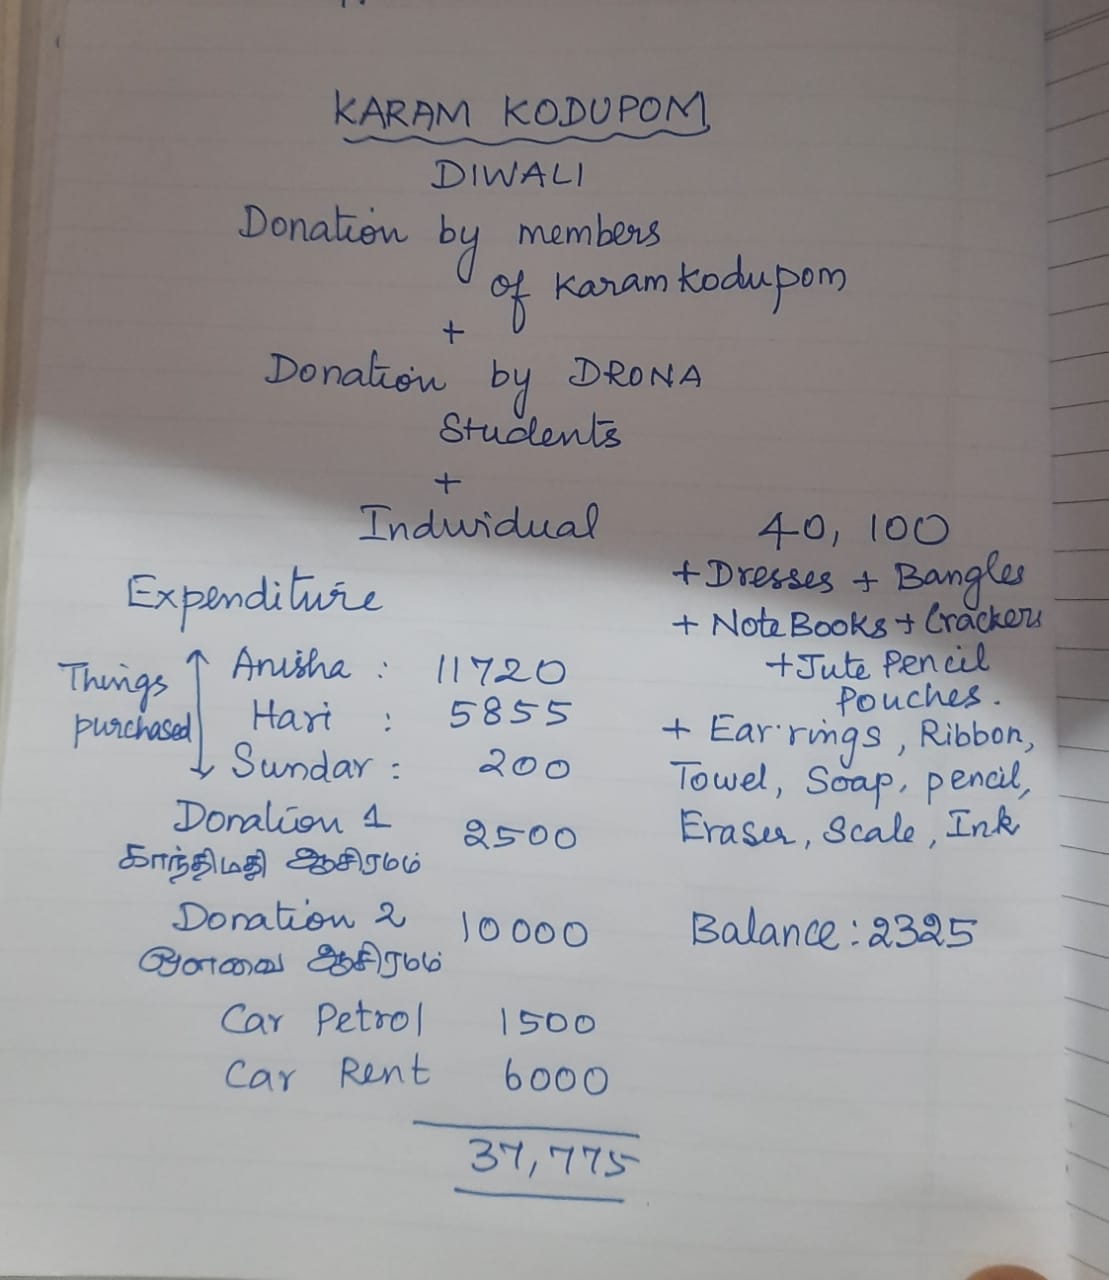 KARAM KODUPOM
DIWALI
Donation by members
of Karam kodupom
+
Donation by DRONA
Students
+
Individual 40, 100
+ Dresses + Bangles
+ Note Books + Crackers
+ Jute Pencil
Pouches.
+ Ear.rings, Ribbon,
Towel, Soap, pencil,
Eraser, Scale, Ink
Expenditure
Things purchased
Anisha : 11720
Hari : 5855
Sundar : 200
Donation 1 2500
காந்திமதி ஆசிரமம்
Donation 2 10000
ஔவை ஆசிரமம்
Balance : 2325
Car Petrol 1500
Car Rent 6000
37,775